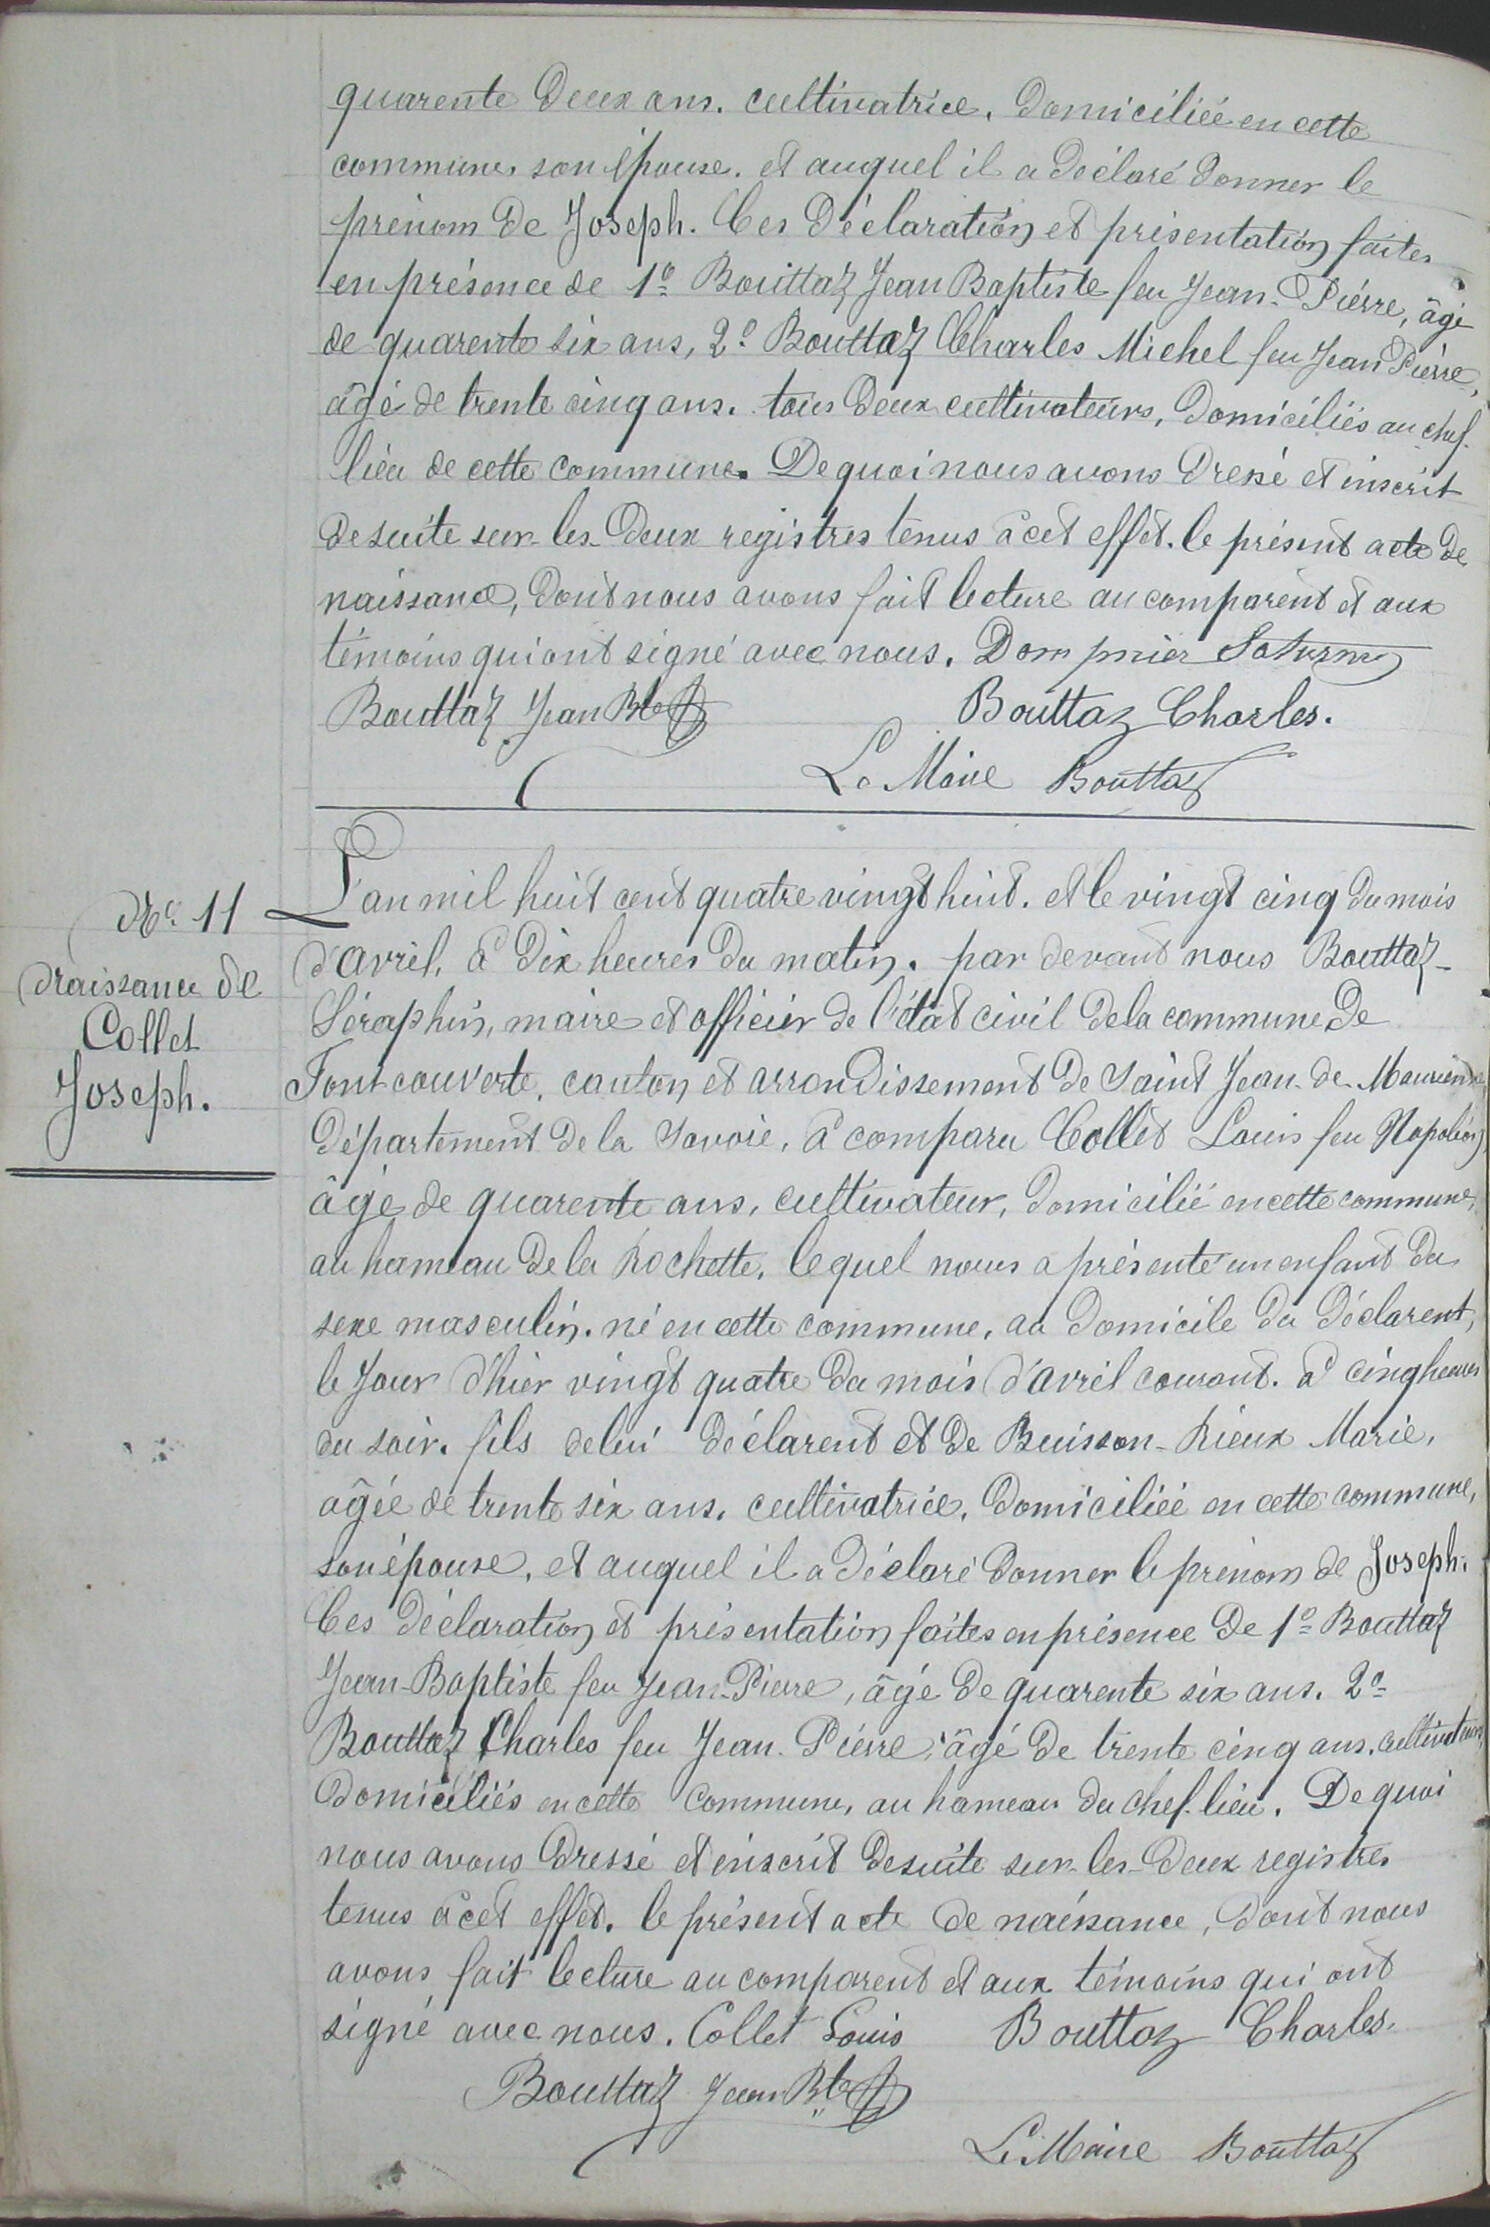 quarente deux ans. cultivatrice, domiciliée en cette
commune, son épouse. et auquel il a déclaré donner le
prénom de Joseph. Ces déclaration et présentation faites
en présence de 1º Bouttaz Jean Baptiste feu Jean-Pierre, âgé
de quarente six ans, 2º Bouttaz Charles Michel feu Jean Pierre,
âgé de trente cinq ans. tous deux cultivateurs, domiciliés au chef-
lieu de cette commune. De quoi nous avons dressé et inscrit
de suite sur-les-deux registres tenus à cet effet. le présent acte de
naissance, dont nous avons fait lecture au comparent et aux
témoins qui ont signé avec nous. Dompnier Saturnin
Bouttaz Jean Bte Bouttaz Charles.
Le Maire Bouttaz
Nº 11
Naissance de
Collet
Joseph.
L'an mil huit cent quatre vingt huit. et le vingt cinq du mois
d'avril, à dix heures du matin. par devant nous Bouttaz-
Séraphin, maire et officier de l'état civil de la commune de
Fontcouverte, canton et arrondissement de Saint Jean-de-Maurienne,
département de la Savoie, à comparu Collet Louis feu Napoléon,
âgé de quarente ans, cultivateur, domicilié en cette commune,
au hameau de la Rochette, lequel nous a présenté un enfant du
sexe masculin. né en cette commune, au domicile du déclarent,
le jour d'hier vingt quatre du mois d'avril courant. à cinq heures
du soir. fils de lui déclarent et de Buisson-Rieux Marie,
âgée de trente six ans. cultivatrice, domiciliée en cette commune,
son épouse, et auquel il a déclaré donner le prénom de Joseph.
Ces déclaration et présentation faites en présence de 1º Bouttaz
Jean-Baptiste feu Jean-Pierre, âgé de quarente six ans. 2º
Bouttaz Charles feu Jean-Pierre, âgé de trente cinq ans. cultivateurs,
domiciliés en cette commune, au hameau du chef-lieu. De quoi
nous avons dressé et inscrit de suite sur-les-deux registres
tenus à cet effet. le présent acte de naissance, dont nous
avons fait lecture au comparent et aux témoins qui ont
signé avec nous. Collet Louis Bouttaz Charles.
Bouttaz Jean Bte
Le Maire Bouttaz